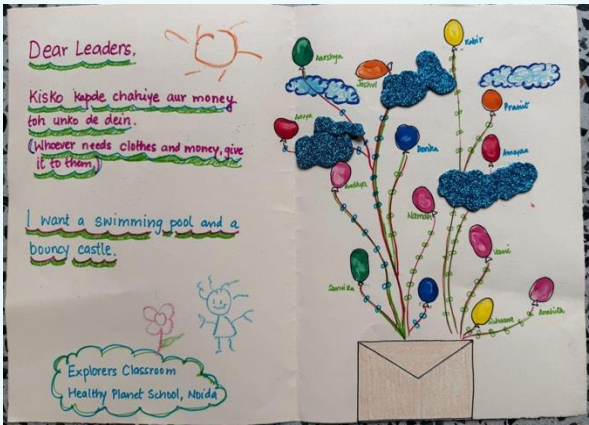 Dear Leaders.
Kisko kapde chahiye aur money
toh unko de dein.
(Whoever needs clothes and money, give
it to them.)
I want a swimming pool and a
bouncy castle.
Explorers Classroom
Healthy Planet School, Noida
Kabir
Aarshya
Jashvi
Pranit
Anvya
Amayra
Aadhya
Naman
Vami
Samviza
Anahita